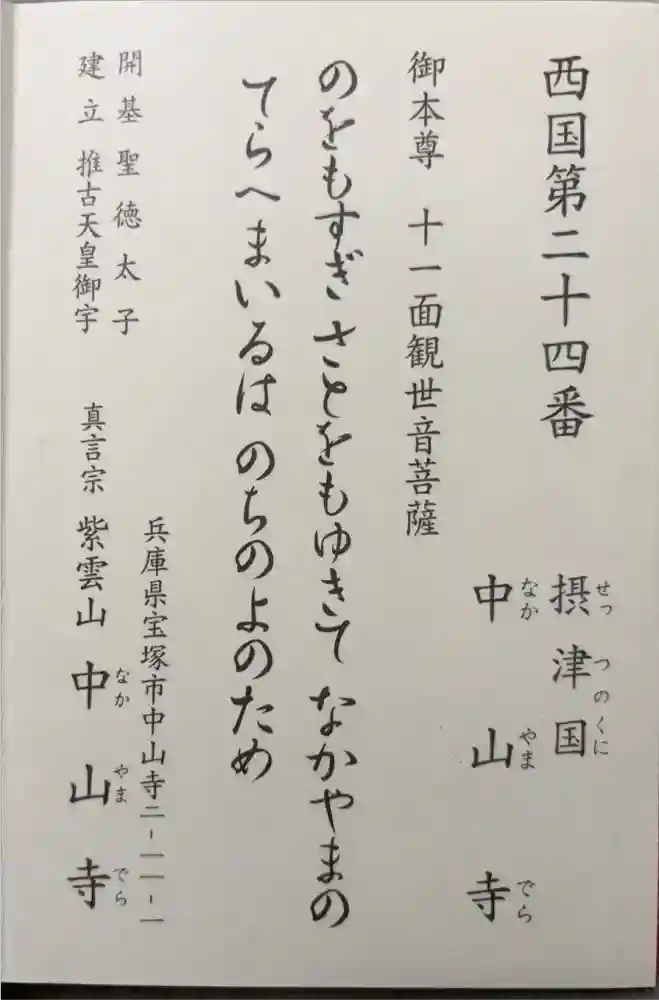 西国第二十四番
摂津国
せっつのくに
中山寺
なかやまでら
御本尊 十一面観世音菩薩
のをもすぎ さとをもゆきて なかやまの
てらへまいるは のちのよのため
開基 聖徳太子
建立 推古天皇御宇
兵庫県宝塚市中山寺二-一一-一
真言宗 紫雲山 中山寺
なかやまでら